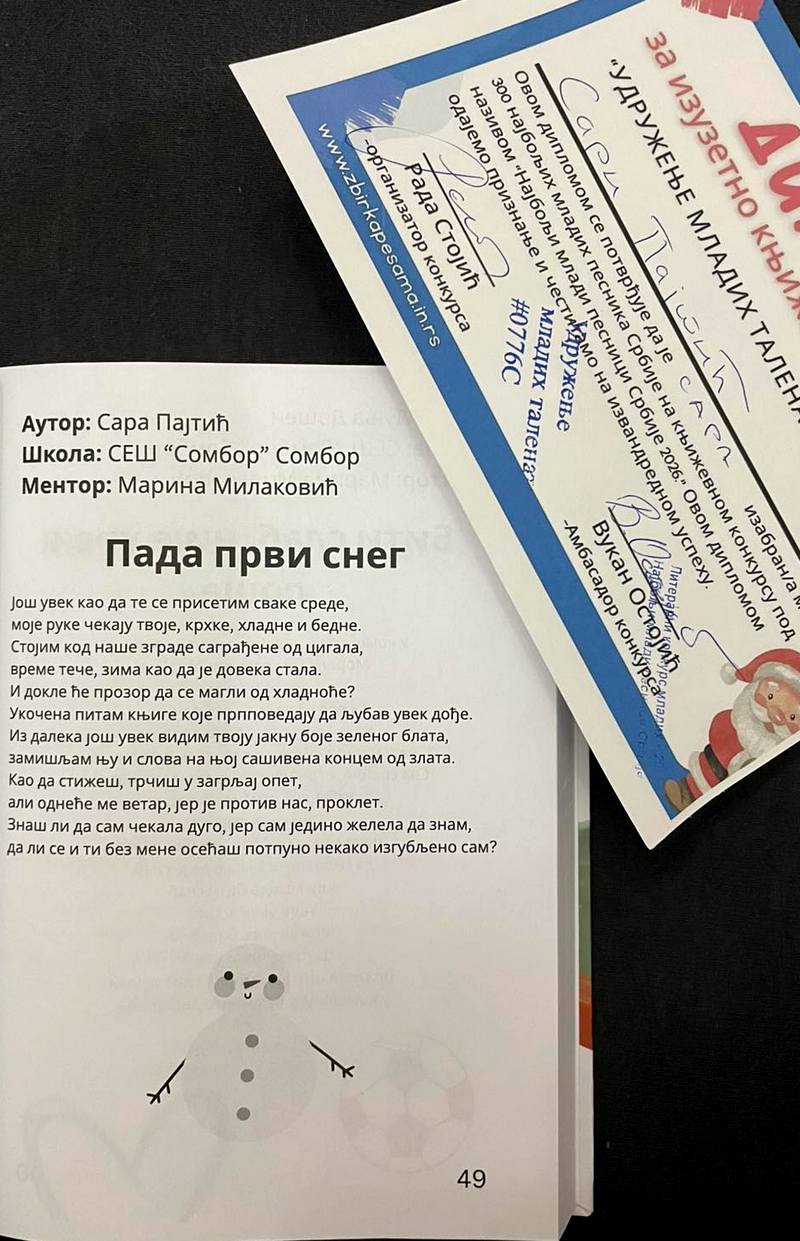 Аутор: Сара Пајтић
Школа: СЕШ “Сомбор” Сомбор
Ментор: Марина Милаковић
Пада први снег
Још увек као да те се присетим сваке среде,
моје руке чекају твоје, крхке, хладне и бедне.
Стојим код наше зграде саграђене од цигала,
време тече, зима као да је довека стала.
И докле ће прозор да се магли од хладноће?
Укочена питам књиге које прпповедају да љубав увек дође.
Из далека још увек видим твоју јакну боје зеленог блата,
замишљам њу и слова на њој сашивена концем од злата.
Као да стижеш, трчиш у загрљај опет,
али однеће ме ветар, јер је против нас, проклет.
Знаш ли да сам чекала дуго, јер сам једино желела да знам,
да ли се и ти без мене осећаш потпуно некако изгубљено сам?
49
за изузетно
“УДРУЖЕЊЕ МЛАДИХ
Сари Пајтић
Овом дипломом се потврђује да је изабран/а
300 најбољих младих песника Србије на књижевном конкурсу под
називом “Најбољи млади песници Србије 2026.” Овом дипломом
одајемо признање и честитамо на изванредном успеху.
Рада Стојић
-организатор конкурса
Удружење
младих талената
#0776C
Вукан Остојић
-Амбасадор конкурса
www.zbirkapesama.in.rs